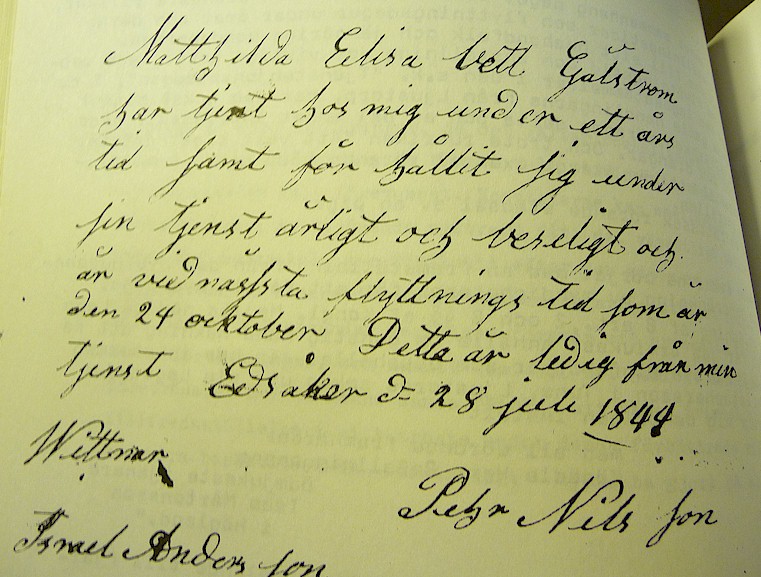 Matthilda Eelisa bett Gälström
har tjent hos mig under ett års
tid samt för hållit sig under
sin tjenst ärligt och beseligt och
är vid nässta flyttnings tid som är
den 24 ocktober Detta är ledig från min
tjenst Edsåker d 28 juli 1844
Wittnar
Pehr Nils son
Israel Anders son